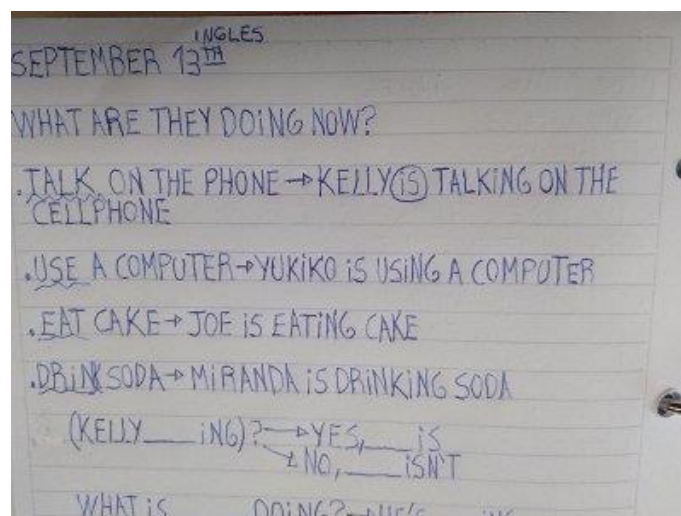 INGLES
SEPTEMBER 13TH
WHAT ARE THEY DOING NOW?
.TALK ON THE PHONE→KELLY IS TALKING ON THE
CELLPHONE
.USE A COMPUTER→YUKIKO IS USING A COMPUTER
.EAT CAKE→JOE IS EATING CAKE
.DRINK SODA→MIRANDA IS DRINKING SODA
(KELLY____ING)?→YES,____IS
→NO,____ISN'T
WHAT IS ____ DOING?→HE'S ____ING